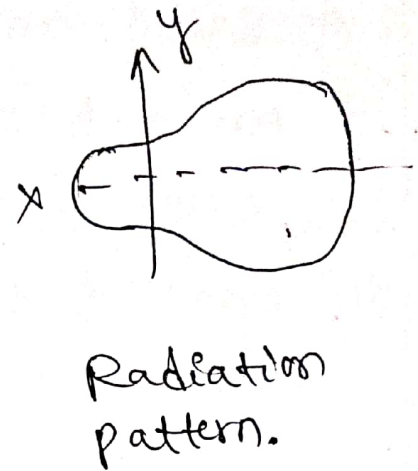 y
x
Radiation
pattern.